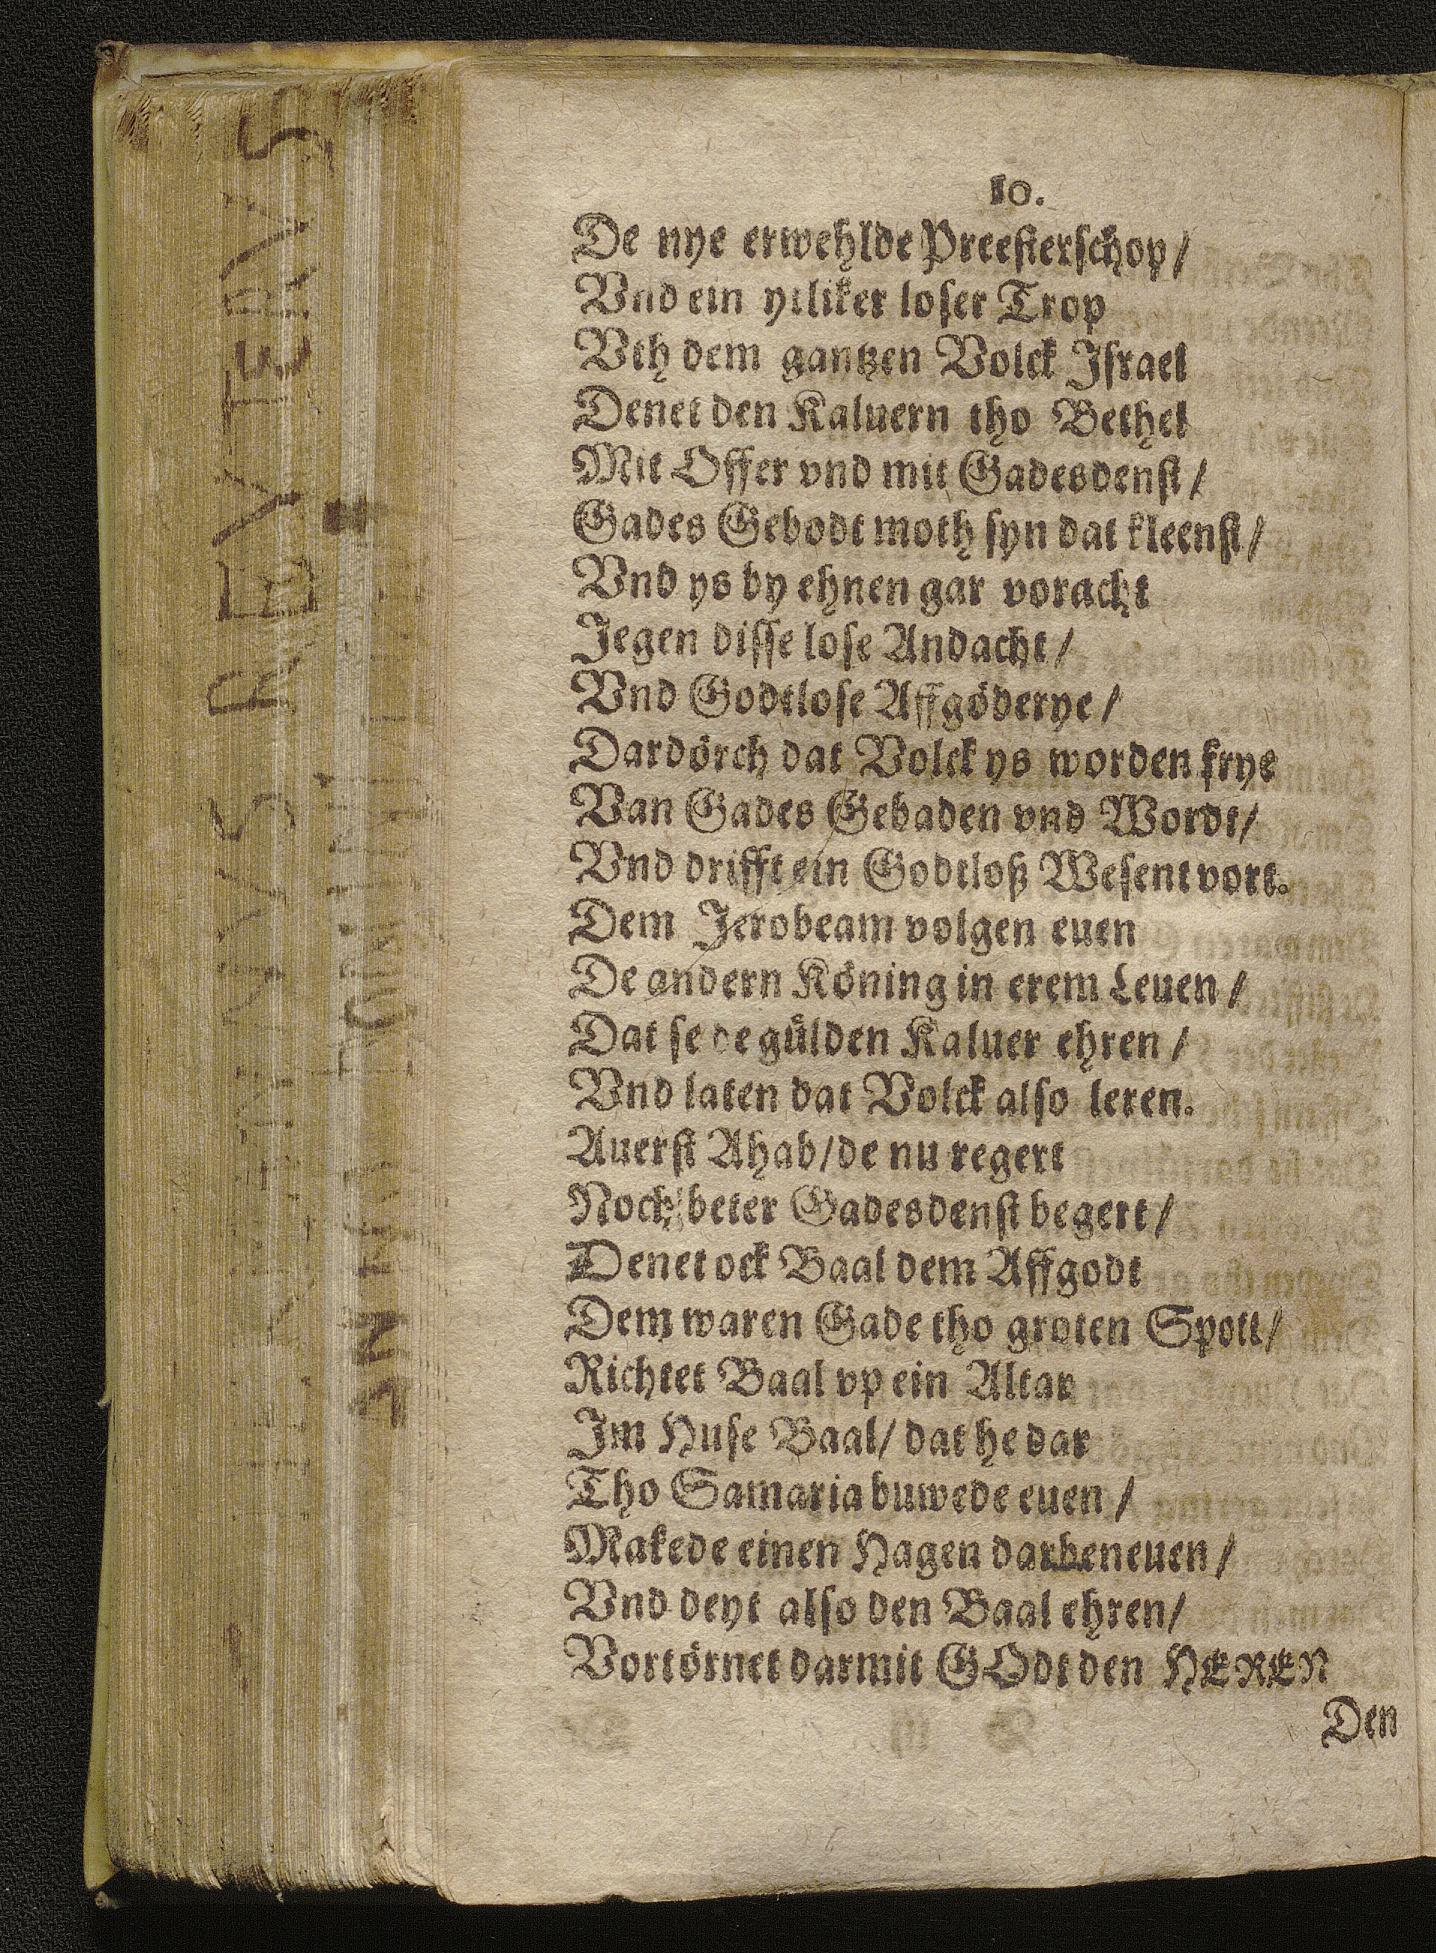 10.
De nye erwehlde Preesterschop/
Vnd ein ytliker loser Trop
Vth dem gantzen Volck Israel
Denet den Kaluern tho Bethel
Mit Offer vnd mit Gadesdenst/
Gades Gebodt moth syn dat kleenst/
Vnd ys by ehnen gar voracht
Jegen disse lose Andacht/
Vnd Godtlose Affgöderye/
Dardörch dat Volck ys worden frye
Van Gades Gebaden vnd Wordt/
Vnd drifft ein Godtloß Wesent vort.
Dem Jerobeam volgen euen
De andern Köning in erem Leuen/
Dat se de gülden Kaluer ehren/
Vnd laten dat Volck also leren.
Auerst Ahab/de nu regert
Noch beter Gadesdenst begert/
Denet ock Baal dem Affgodt
Dem waren Gade tho groten Spott/
Richtet Baal vp ein Altar
Im Huse Baal/ dat he dar
Tho Samaria buwede euen/
Makede einen Hagen darbeneuen/
Vnd deyt also den Baal ehren/
Vortörnet darmit GOdt den HEREN
Den
REVTERVS